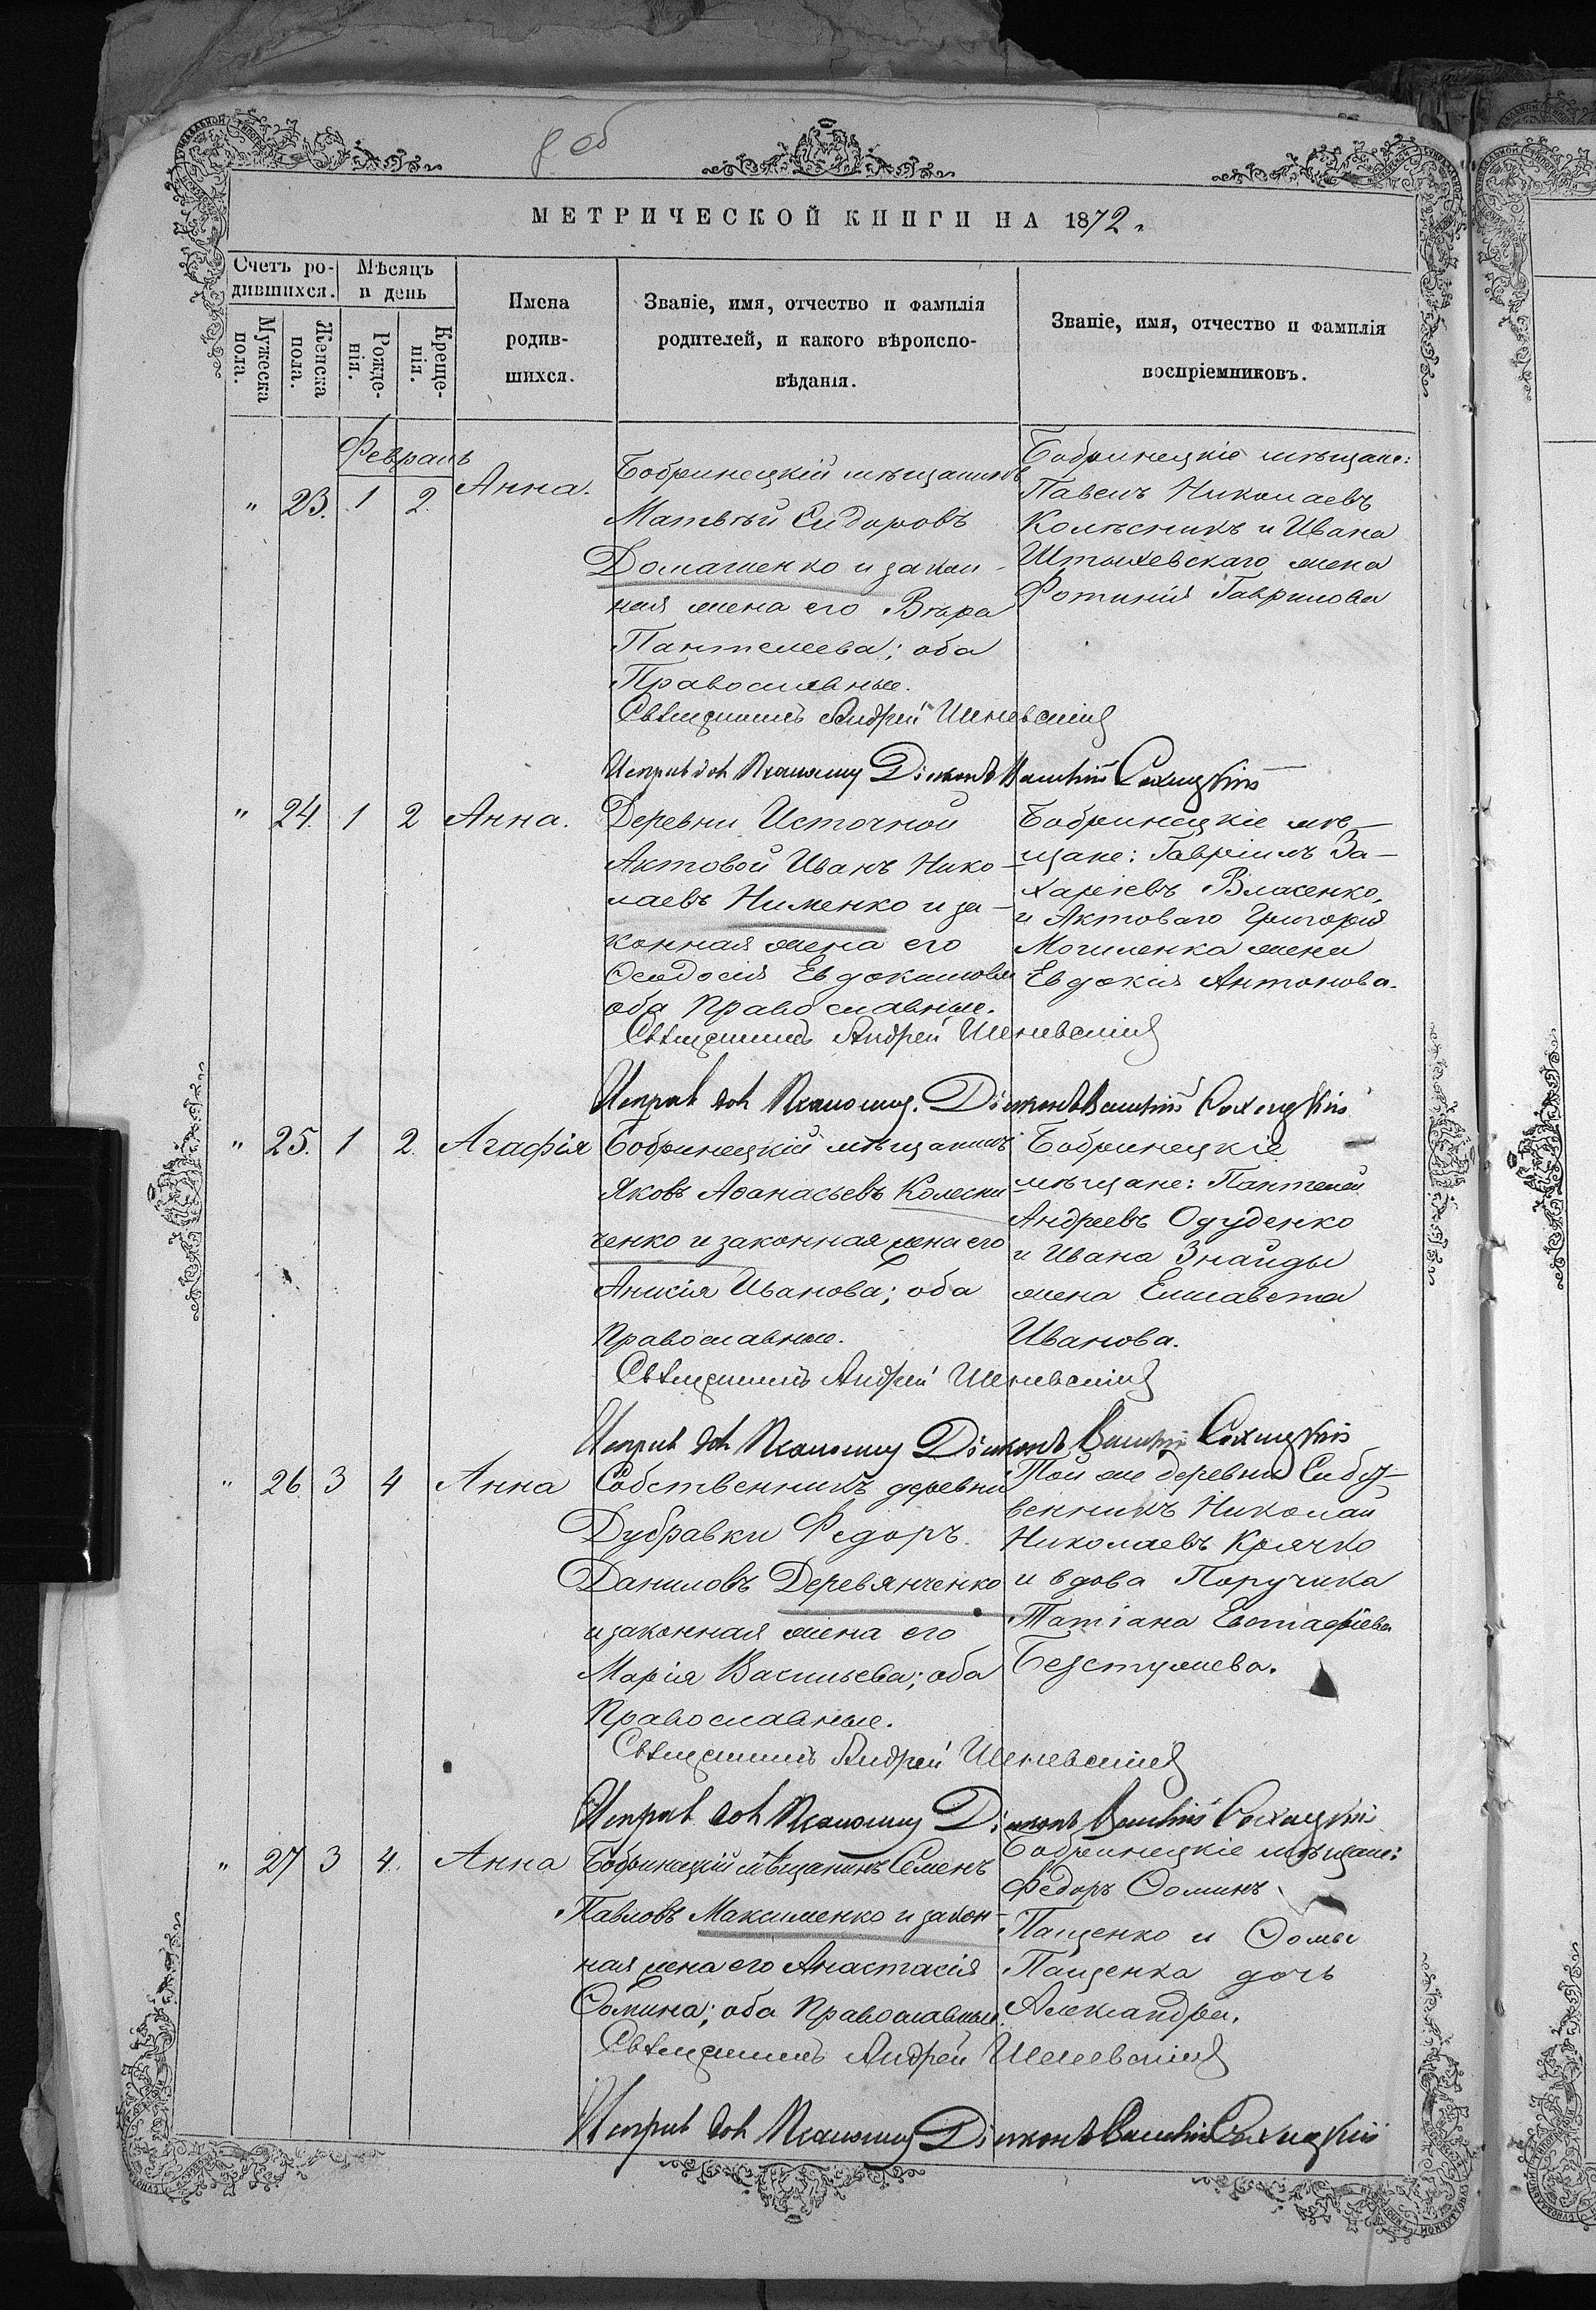 8 об
МЕТРИЧЕСКОЙ КНИГИ НА 1872.
Счетъ ро-
дившихся.
Мѣсяцъ
и день
Мужеска
пола.
Женска
пола.
Рожде-
нія.
Креще-
нія.
Имена
родив-
шихся.
Званіе, имя, отчество и фамилія
родителей, и какого вѣроиспо-
вѣданія.
Званіе, имя, отчество и фамилія
воспріемниковъ.
Февраль
" 23. 1 2. Анна.
Бобринецкій мѣщанинъ
Матвѣй Сидоровъ
Домашенко и закон-
ная жена его Вѣра
Пантелеева; оба
Православные.
Бобринецкіе мѣщане:
Павелъ Николаевъ
Колѣсникъ и Ивана
жена
Фотинія Гаврилова
Священникъ Андрей
Исправ. дол. Псаломщ. Діаконъ
" 24. 1 2 Анна.
Деревни Источной
Актовой Иванъ Нико-
лаевъ Нименко и за-
конная жена его
Ѳеодосія Евдокимова
оба православные.
Бобринецкіе мѣ-
щане: Гавріилъ За-
харіевъ Власенко,
и Актоваго Григорія
Могиленка жена
Евдокія Антонова.
Священникъ Андрей
Исправ. дол. Псаломщ. Діаконъ
" 25. 1 2. Агафія
Бобринецкій мѣщанинъ
Яковъ Аѳанасьевъ Колесни
ченко и законная жена его
Иванова; оба
православные.
Бобринецкіе
мѣщане: Пантелей
Андреевъ Одуденко
и Ивана Знайды
жена Елисавета
Иванова.
Священникъ Андрей
Исправ. дол. Псаломщ. Діаконъ
" 26. 3 4 Анна
Собственникъ деревни
Дубравки Федоръ
Даниловъ Деревянченко
и законная жена его
Марія Васильева; оба
православные.
Той же деревни Собст-
венникъ Николай
Николаевъ Крячко
и вдова Поручика
Татіана Евстафіева
Безстужева.
Священникъ Андрей
Исправ. дол. Псаломщ. Діаконъ
" 27 3 4. Анна
Бобринецкій мѣщанинъ Семенъ
Павловъ Максименко и закон-
ная жена его Анастасія
Ѳомина; оба православные.
Бобринецкіе мѣщане:
Федоръ Ѳоминъ
Пащенко и Ѳомы
Пащенка дочь
Александра.
Священникъ Андрей
Исправ. дол. Псаломщ. Діаконъ